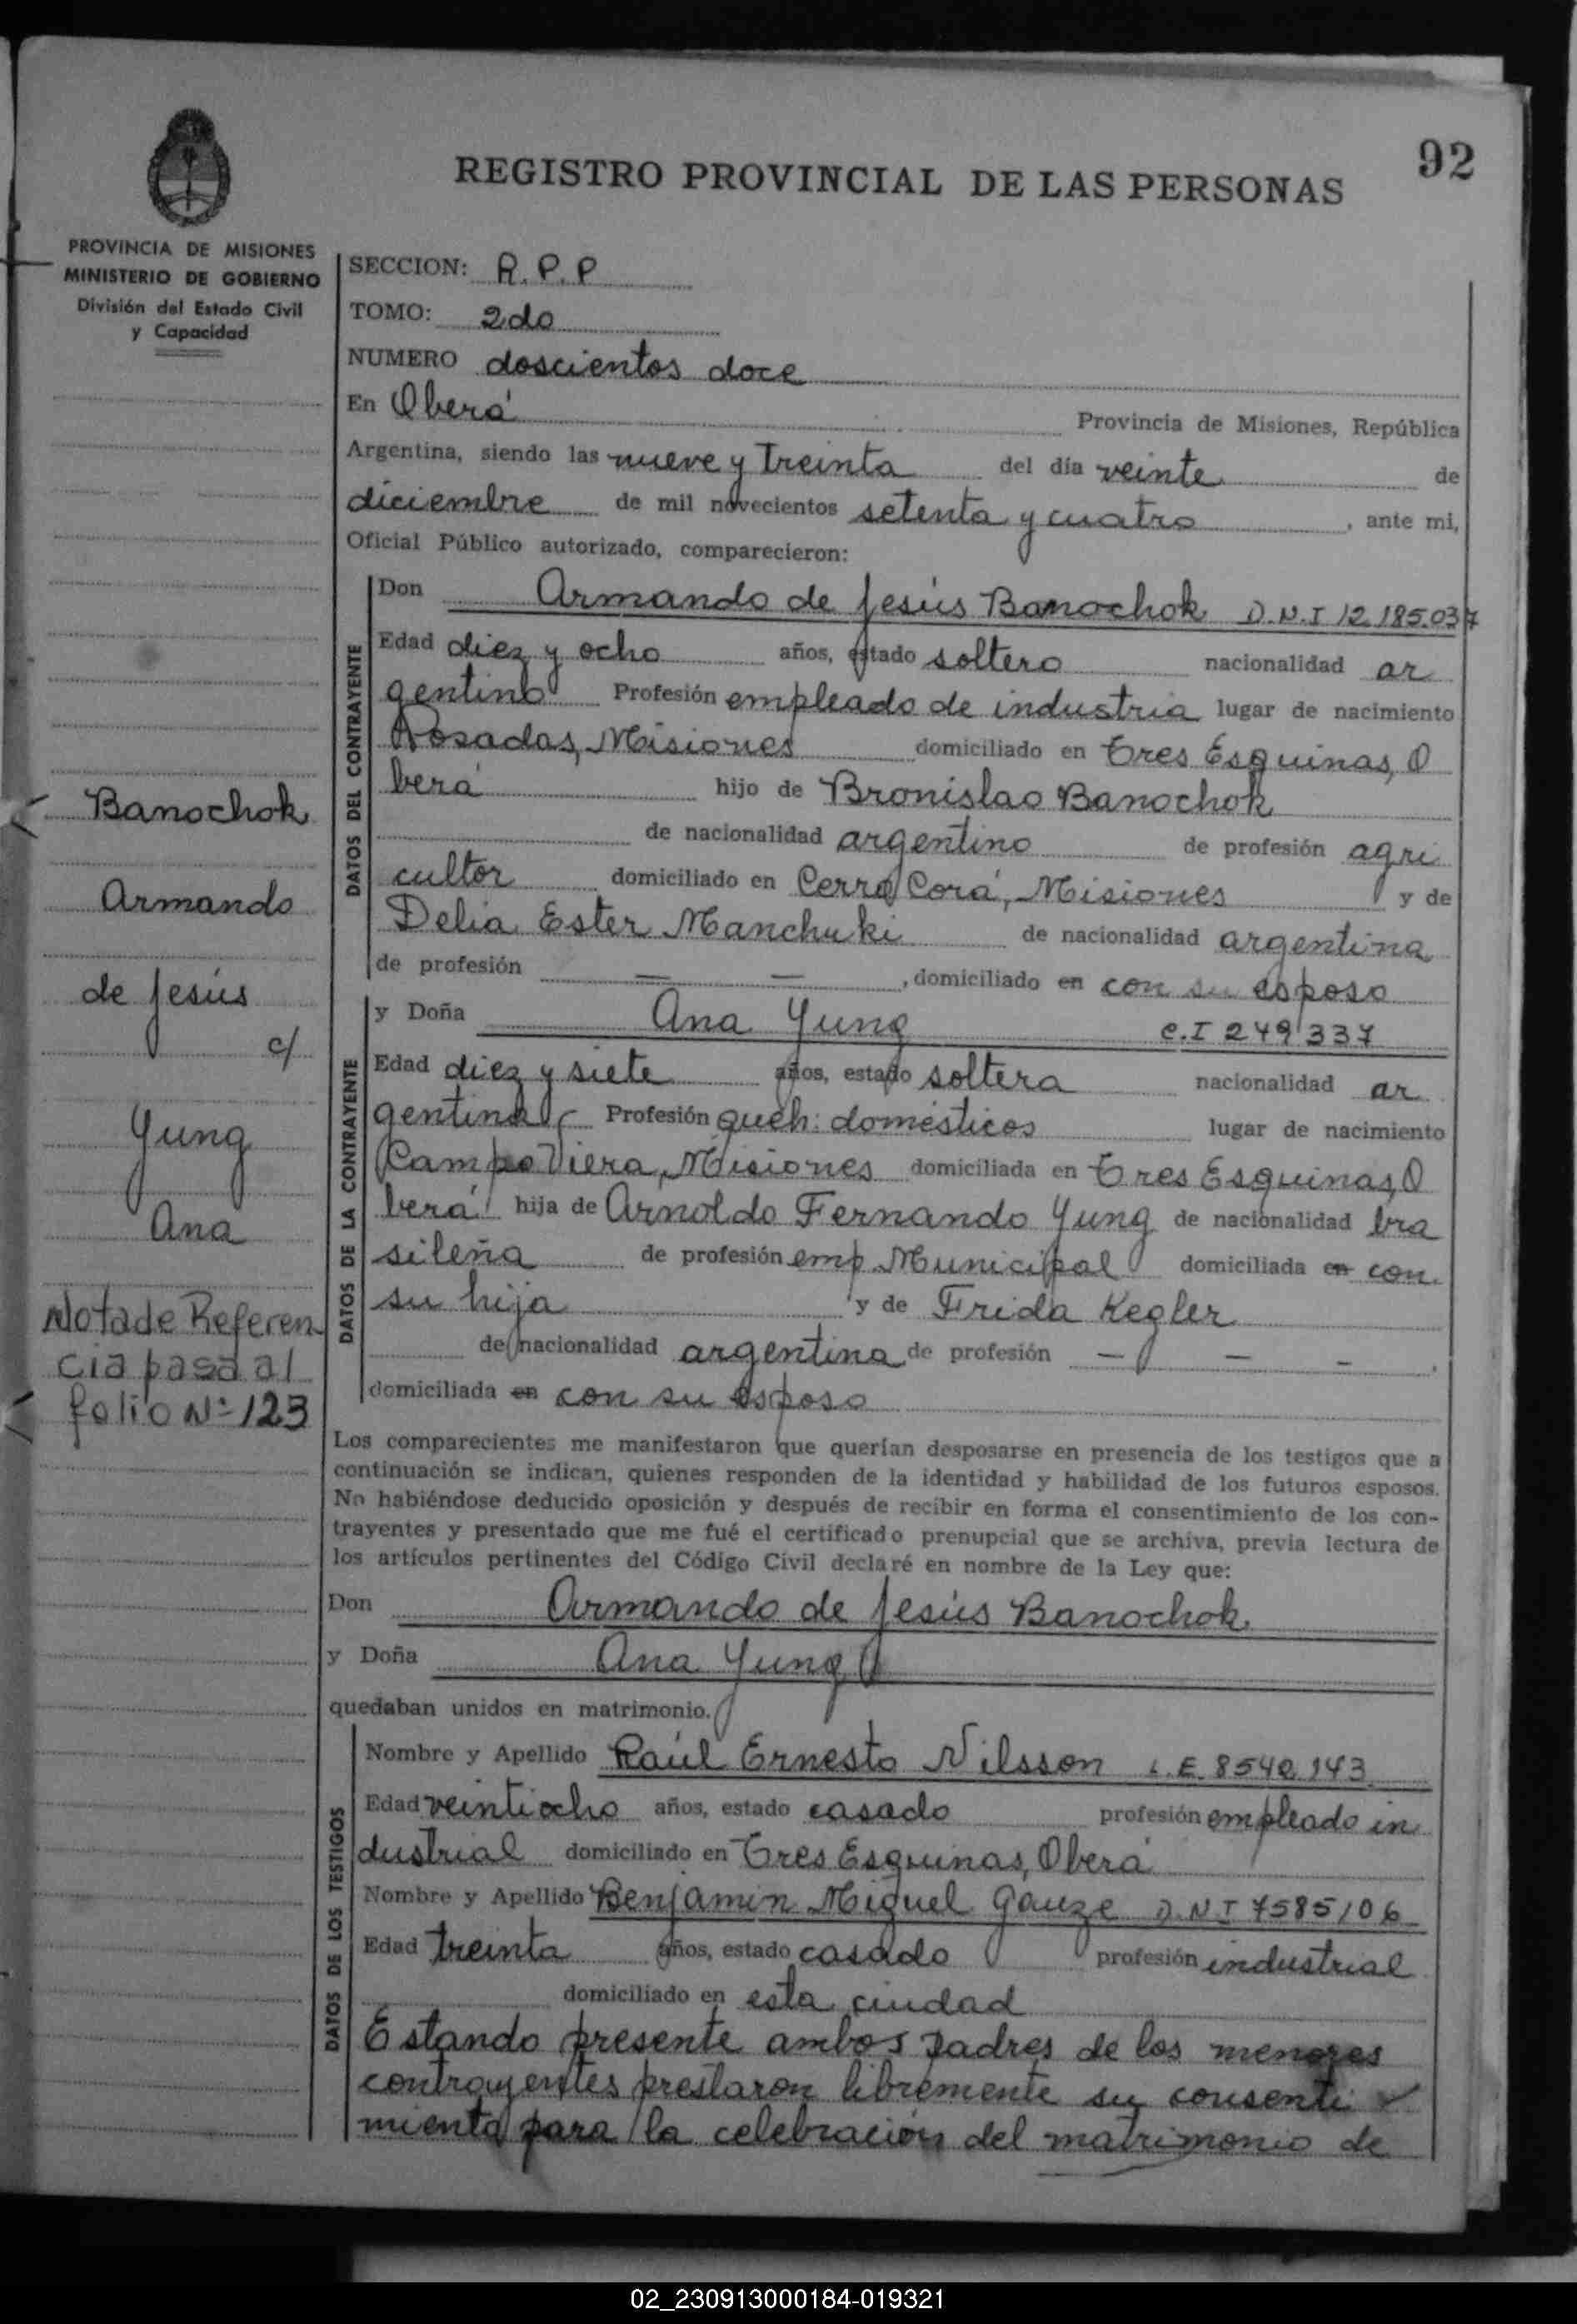 92
REGISTRO PROVINCIAL DE LAS PERSONAS
PROVINCIA DE MISIONES
MINISTERIO DE GOBIERNO
División del Estado Civil
y Capacidad
Banochok
Armando
de Jesús
c/
Yung
Ana
Nota de Referen
cia pasa al
folio Nº 123
SECCION: R.P.P
TOMO: 2do
NUMERO doscientos doce
En Oberá Provincia de Misiones, República
Argentina, siendo las nueve y treinta del día veinte de
diciembre de mil novecientos setenta y cuatro, ante mi,
Oficial Público autorizado, comparecieron:
DATOS DEL CONTRAYENTE
Don Armando de Jesús Banochok D.N.I 12.185.037
Edad diez y ocho años, estado soltero nacionalidad ar
gentino Profesión empleado de industria lugar de nacimiento
Posadas, Misiones domiciliado en Tres Esquinas, O
berá hijo de Bronislao Banochok
de nacionalidad argentino de profesión agri
cultor domiciliado en Cerro Corá, Misiones y de
Delia Ester Manchuki de nacionalidad argentina
de profesión — —, domiciliado en con su esposo
DATOS DE LA CONTRAYENTE
y Doña Ana Yung C.I 249337
Edad diez y siete años, estado soltera nacionalidad ar
gentina Profesión queh: domésticos lugar de nacimiento
Campo Viera, Misiones domiciliada en Tres Esquinas, O
berá hija de Arnoldo Fernando Yung de nacionalidad bra
sileña de profesión emp Municipal domiciliada en con
su hija y de Frida Kegler
de nacionalidad argentina de profesión — — —.
domiciliada en con su esposo
Los comparecientes me manifestaron que querían desposarse en presencia de los testigos que a
continuación se indican, quienes responden de la identidad y habilidad de los futuros esposos.
No habiéndose deducido oposición y después de recibir en forma el consentimiento de los con-
trayentes y presentado que me fué el certificado prenupcial que se archiva, previa lectura de
los artículos pertinentes del Código Civil declaré en nombre de la Ley que:
Don Armando de Jesús Banochok
y Doña Ana Yung
quedaban unidos en matrimonio.
DATOS DE LOS TESTIGOS
Nombre y Apellido Raúl Ernesto Nilsson L.E. 8542143
Edad veintiocho años, estado casado profesión empleado in
dustrial domiciliado en Tres Esquinas, Oberá
Nombre y Apellido Benjamin Miguel Gauze D.N.I 7585106
Edad treinta años, estado casado profesión industrial
domiciliado en esta ciudad
Estando presente ambos padres de los menores
contrayentes prestaron libremente su consenti
miento para la celebración del matrimonio de
02_230913000184-019321